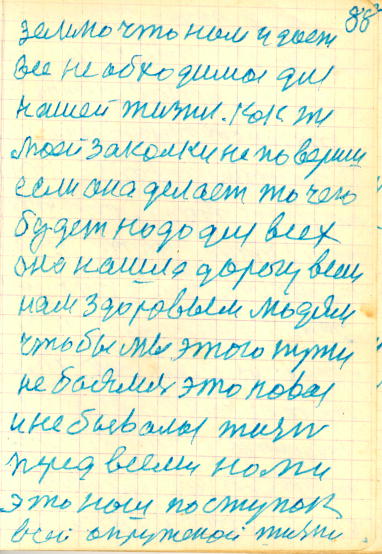 88
землю что нам и дает
все необходимое для
нашей жизни. Как же
моей закалки не повериш
если она делает то чего
будет надо для всех
она нашла дорогу всем
нам здоровым людям
чтобы мы этого пути
не боялись это новая
и небывалая жизнь
перед всеми нами
это наш поступок
всей окружаой жизни